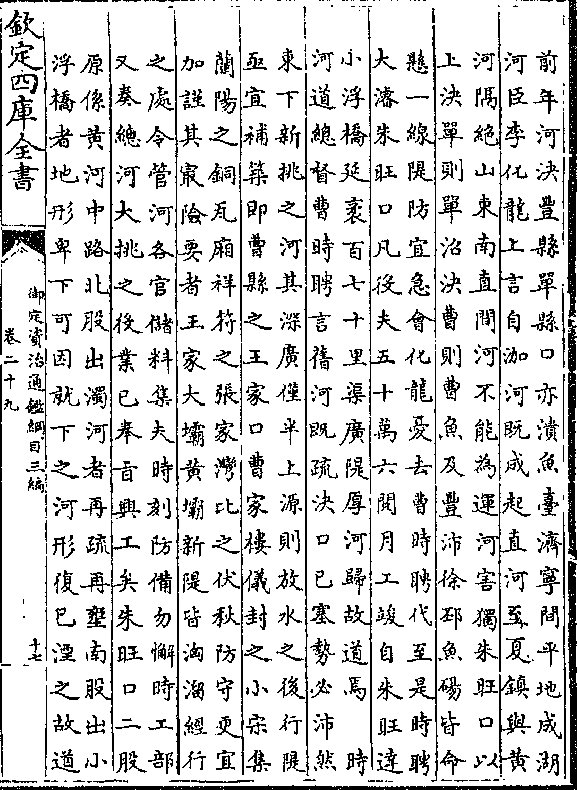 前年河決豐縣單縣口亦潰魚臺濟寧間平地成湖
河臣李化龍上言自泇河既成起直河至夏鎮與黃
河隔絶山東南直間河不能為運河害獨朱旺口以
上決單則單沼決曹則曹魚及豐沛徐邳魚碭皆命
懸一線隄防宜急會化龍憂去曹時聘代至是時聘
大濬朱旺口凡役夫五十萬六閱月工竣自朱旺達
小浮橋延袤百七十里渠廣隄厚河歸故道焉　時
河道總督曹時聘言舊河既疏決口已塞勢必沛然
東下新挑之河其深廣僅半上源則放水之後行隄
亟宜補築即曹縣之王家口曹家樓儀封之小宋集
蘭陽之銅瓦廂祥符之張家灣比之伏秋防守更宜
加謹其最險要者王家大壩黄壩新隄皆洶溜經行
之處令管河各官儲料集夫時刻防備勿懈時工部
又奏總河大挑之後業已奉㫖興工矣朱旺口二股
原係黄河中路北股出濁河者再疏再壅南股出小
浮橋者地形卑下可因就下之河形復已湮之故道
欽定四庫全書
御定資治通鑑綱目三編
卷二十九
十七